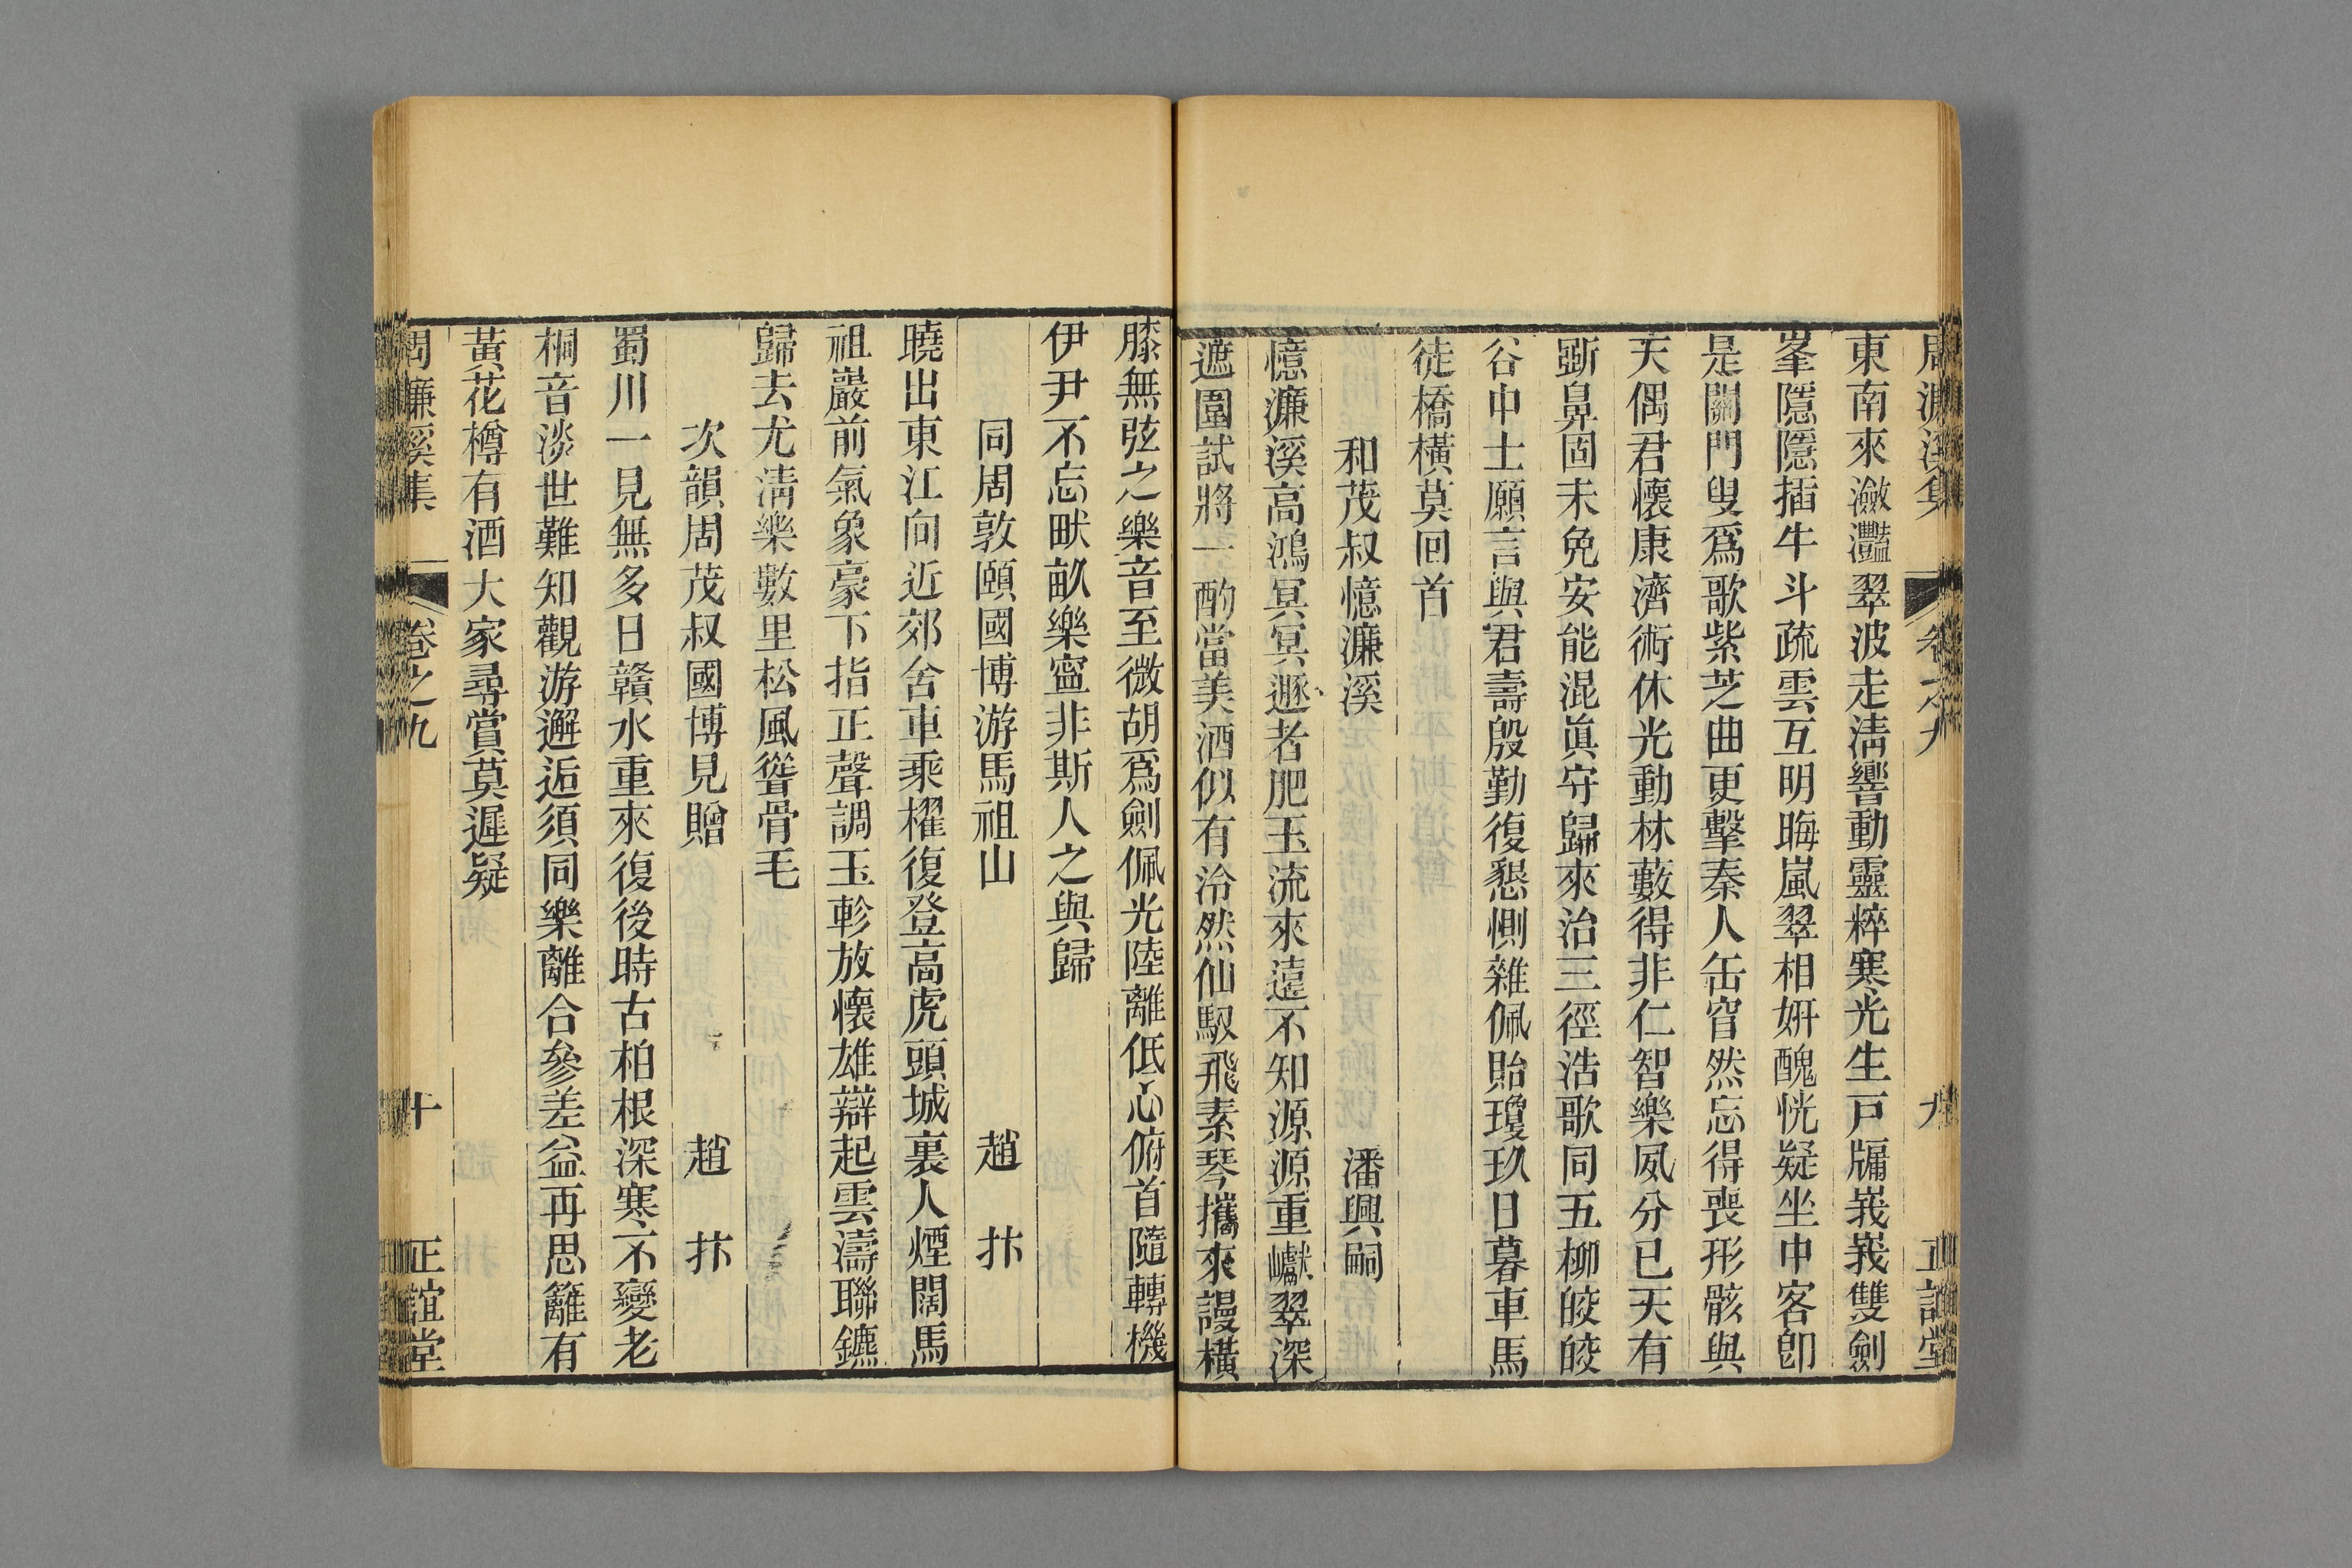 周濂溪集 卷之九 九 正誼堂
東南來瀲灩翠波走淸響動靈粹寒光生戸牖峩峩雙劍
峯隱隱插牛斗疏雲互明晦嵐翠相姸醜恍疑坐中客卽
是關門叟爲歌紫芝曲更擊秦人缶窅然忘得喪形骸與
天偶君懷康濟術休光動林藪得非仁智樂夙分已天有
斲鼻固未免安能混眞守歸來治三徑浩歌同五柳皎皎
谷中士願言與君壽殷勤復懇惻雜佩貽瓊玖日暮車馬
徒橋橫莫回首
和茂叔憶濂溪 潘興嗣
憶濂溪高鴻冥冥遯者肥玉流來遠不知源源重巘翠深
遮圍試將一酌當美酒似有泠然仙馭飛素琴攜來謾橫
膝無弦之樂音至微胡爲劍佩光陸離低心俯首隨轉機
伊尹不忘畎畝樂寧非斯人之與歸
同周敦頤國博游馬祖山 趙抃
曉出東江向近郊舍車乘櫂復登高虎頭城裏人煙闊馬
祖巖前氣象豪下指正聲調玉軫放懷雄辯起雲濤聯鑣
歸去尤淸樂數里松風聳骨毛
次韻周茂叔國博見贈 趙抃
蜀川一見無多日贛水重來復後時古柏根深寒不變老
桐音淡世難知觀游邂逅須同樂離合參差益再思籬有
黃花樽有酒大家尋賞莫遲疑
周濂溪集 卷之九 十 正誼堂